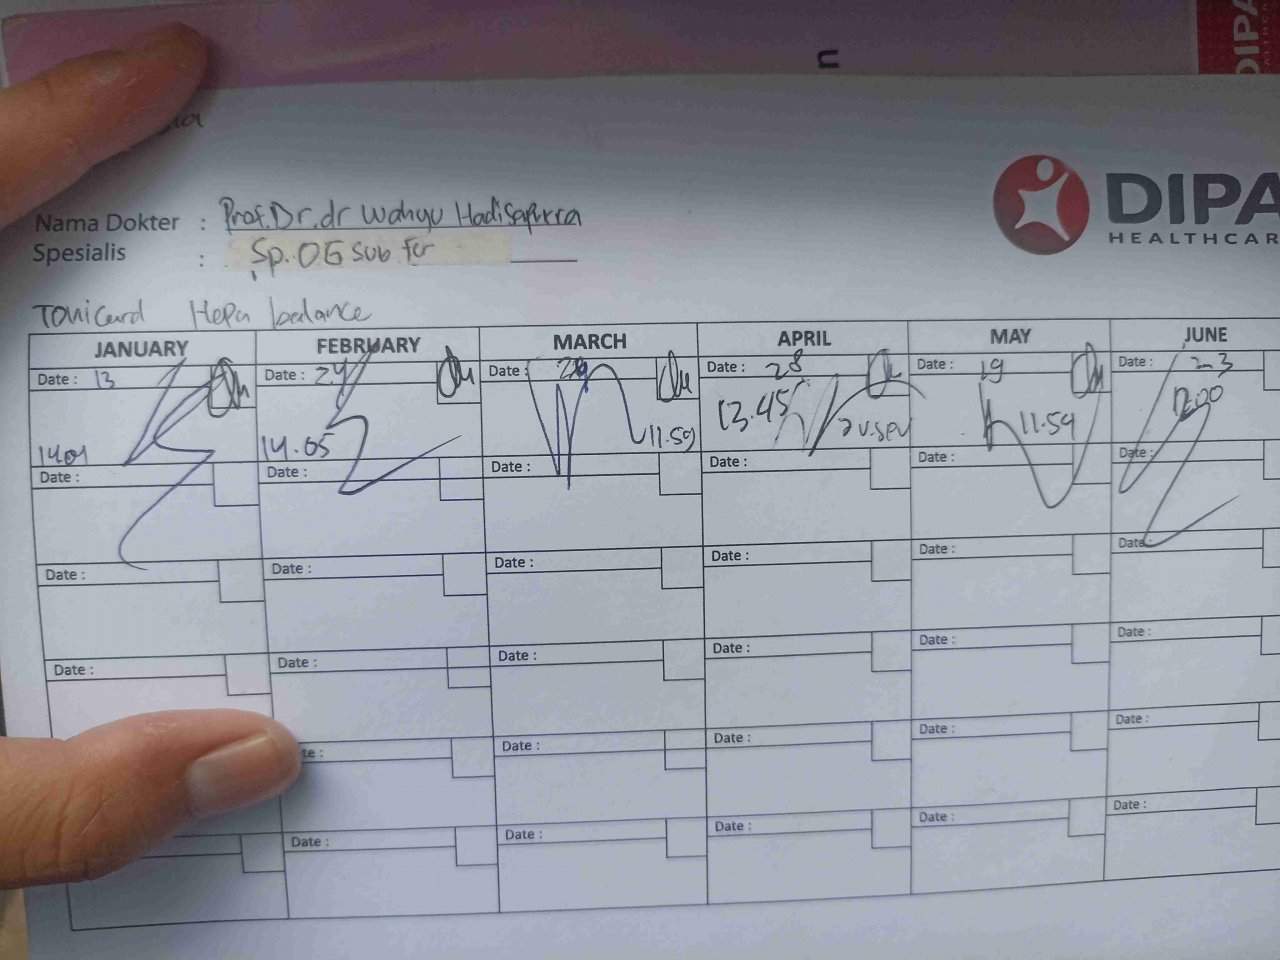 n
DIPA
Nama Dokter : Prof. Dr. dr Wahyu Hadisaputra
DIPA
HEALTHCAR
Spesialis : Sp. OG sub Fer
Tonicard Hepa balance
JANUARY FEBRUARY MARCH APRIL MAY JUNE
Date : 13 Date : 24 Date : Date : 28 Date : 19 Date : 23
14.01 14.05 11.59 13.45 11.59 12.00
Date : Date : Date : Date : Date : Date :
Date : Date : Date : Date : Date : Date :
Date : Date : Date : Date : Date : Date :
te : Date : Date : Date : Date :
Date : Date : Date : Date : Date :